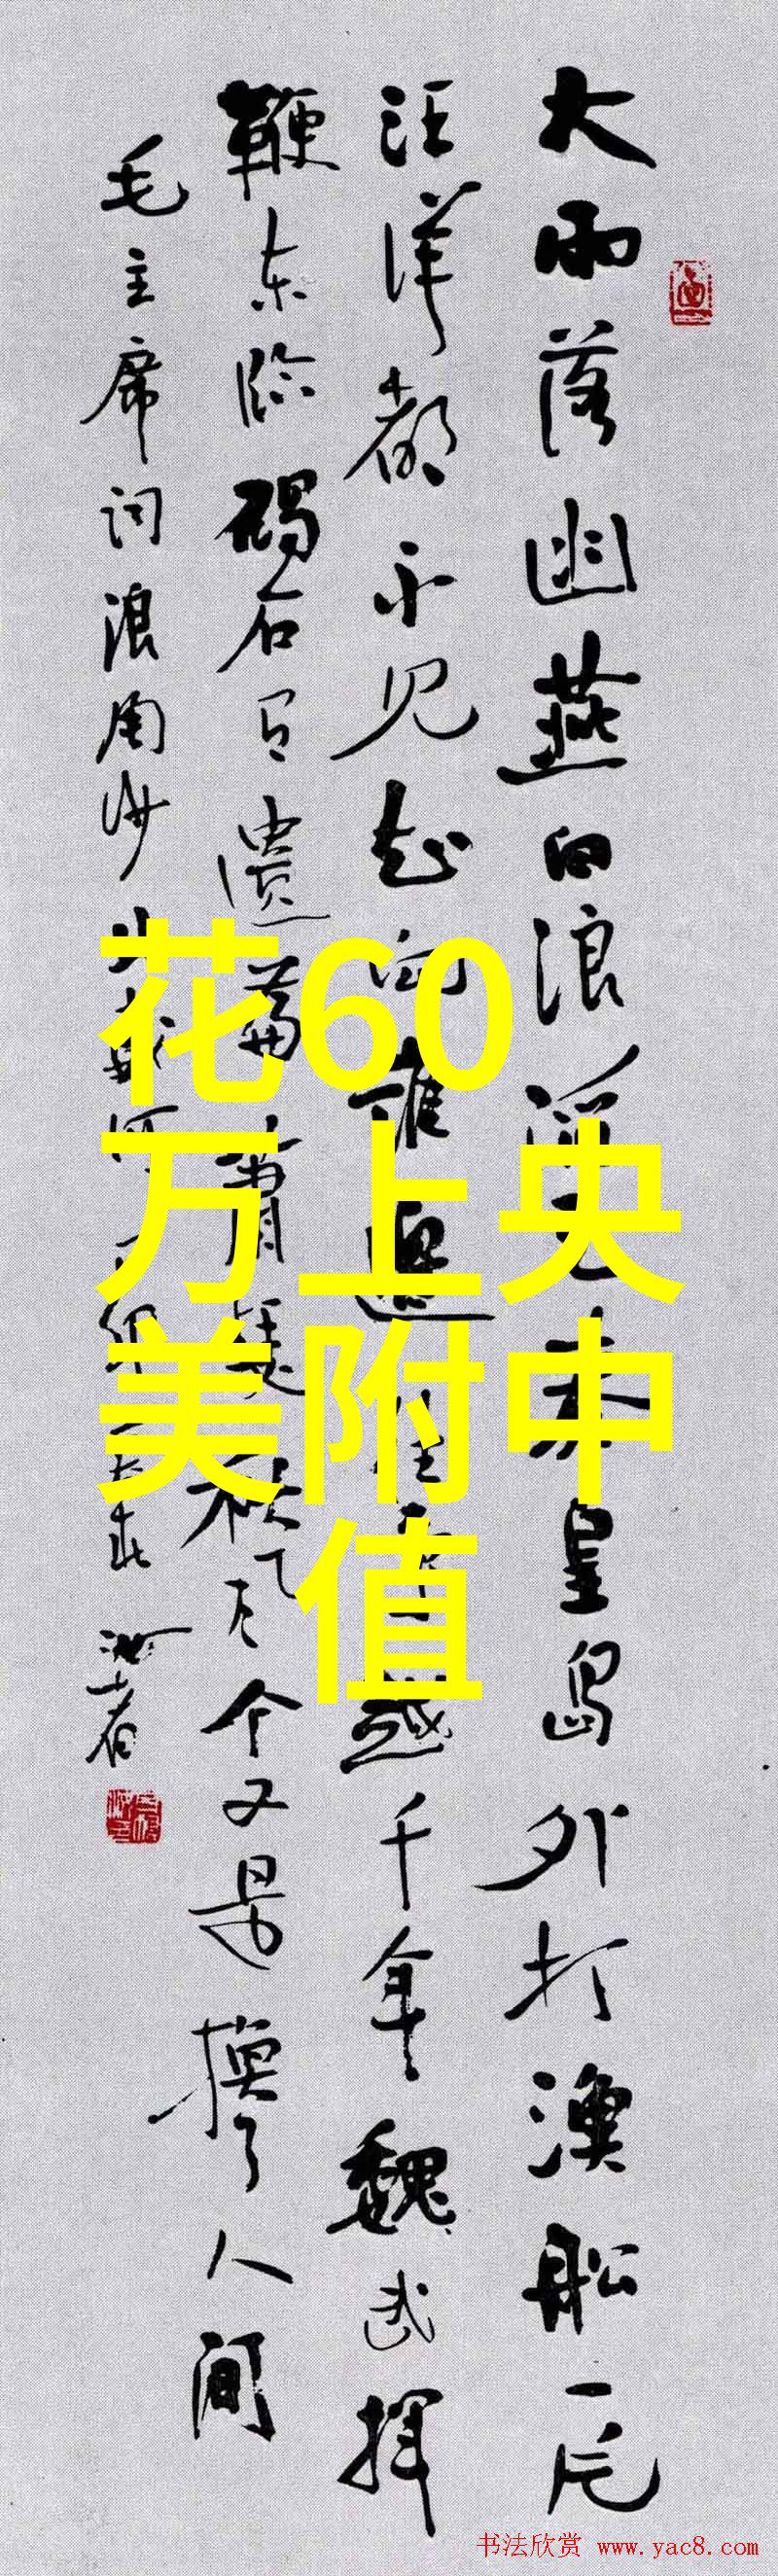 大雨落幽燕白浪滔天秦皇岛外打漁船一片
汪洋都不见知向谁边往事越千年魏武挥
鞭东临碣石有遗篇萧瑟秋风今又是换了人间
毛主席词浪淘沙北戴河
花60
万上央
美附申
值
书法欣赏 www.yac8.com